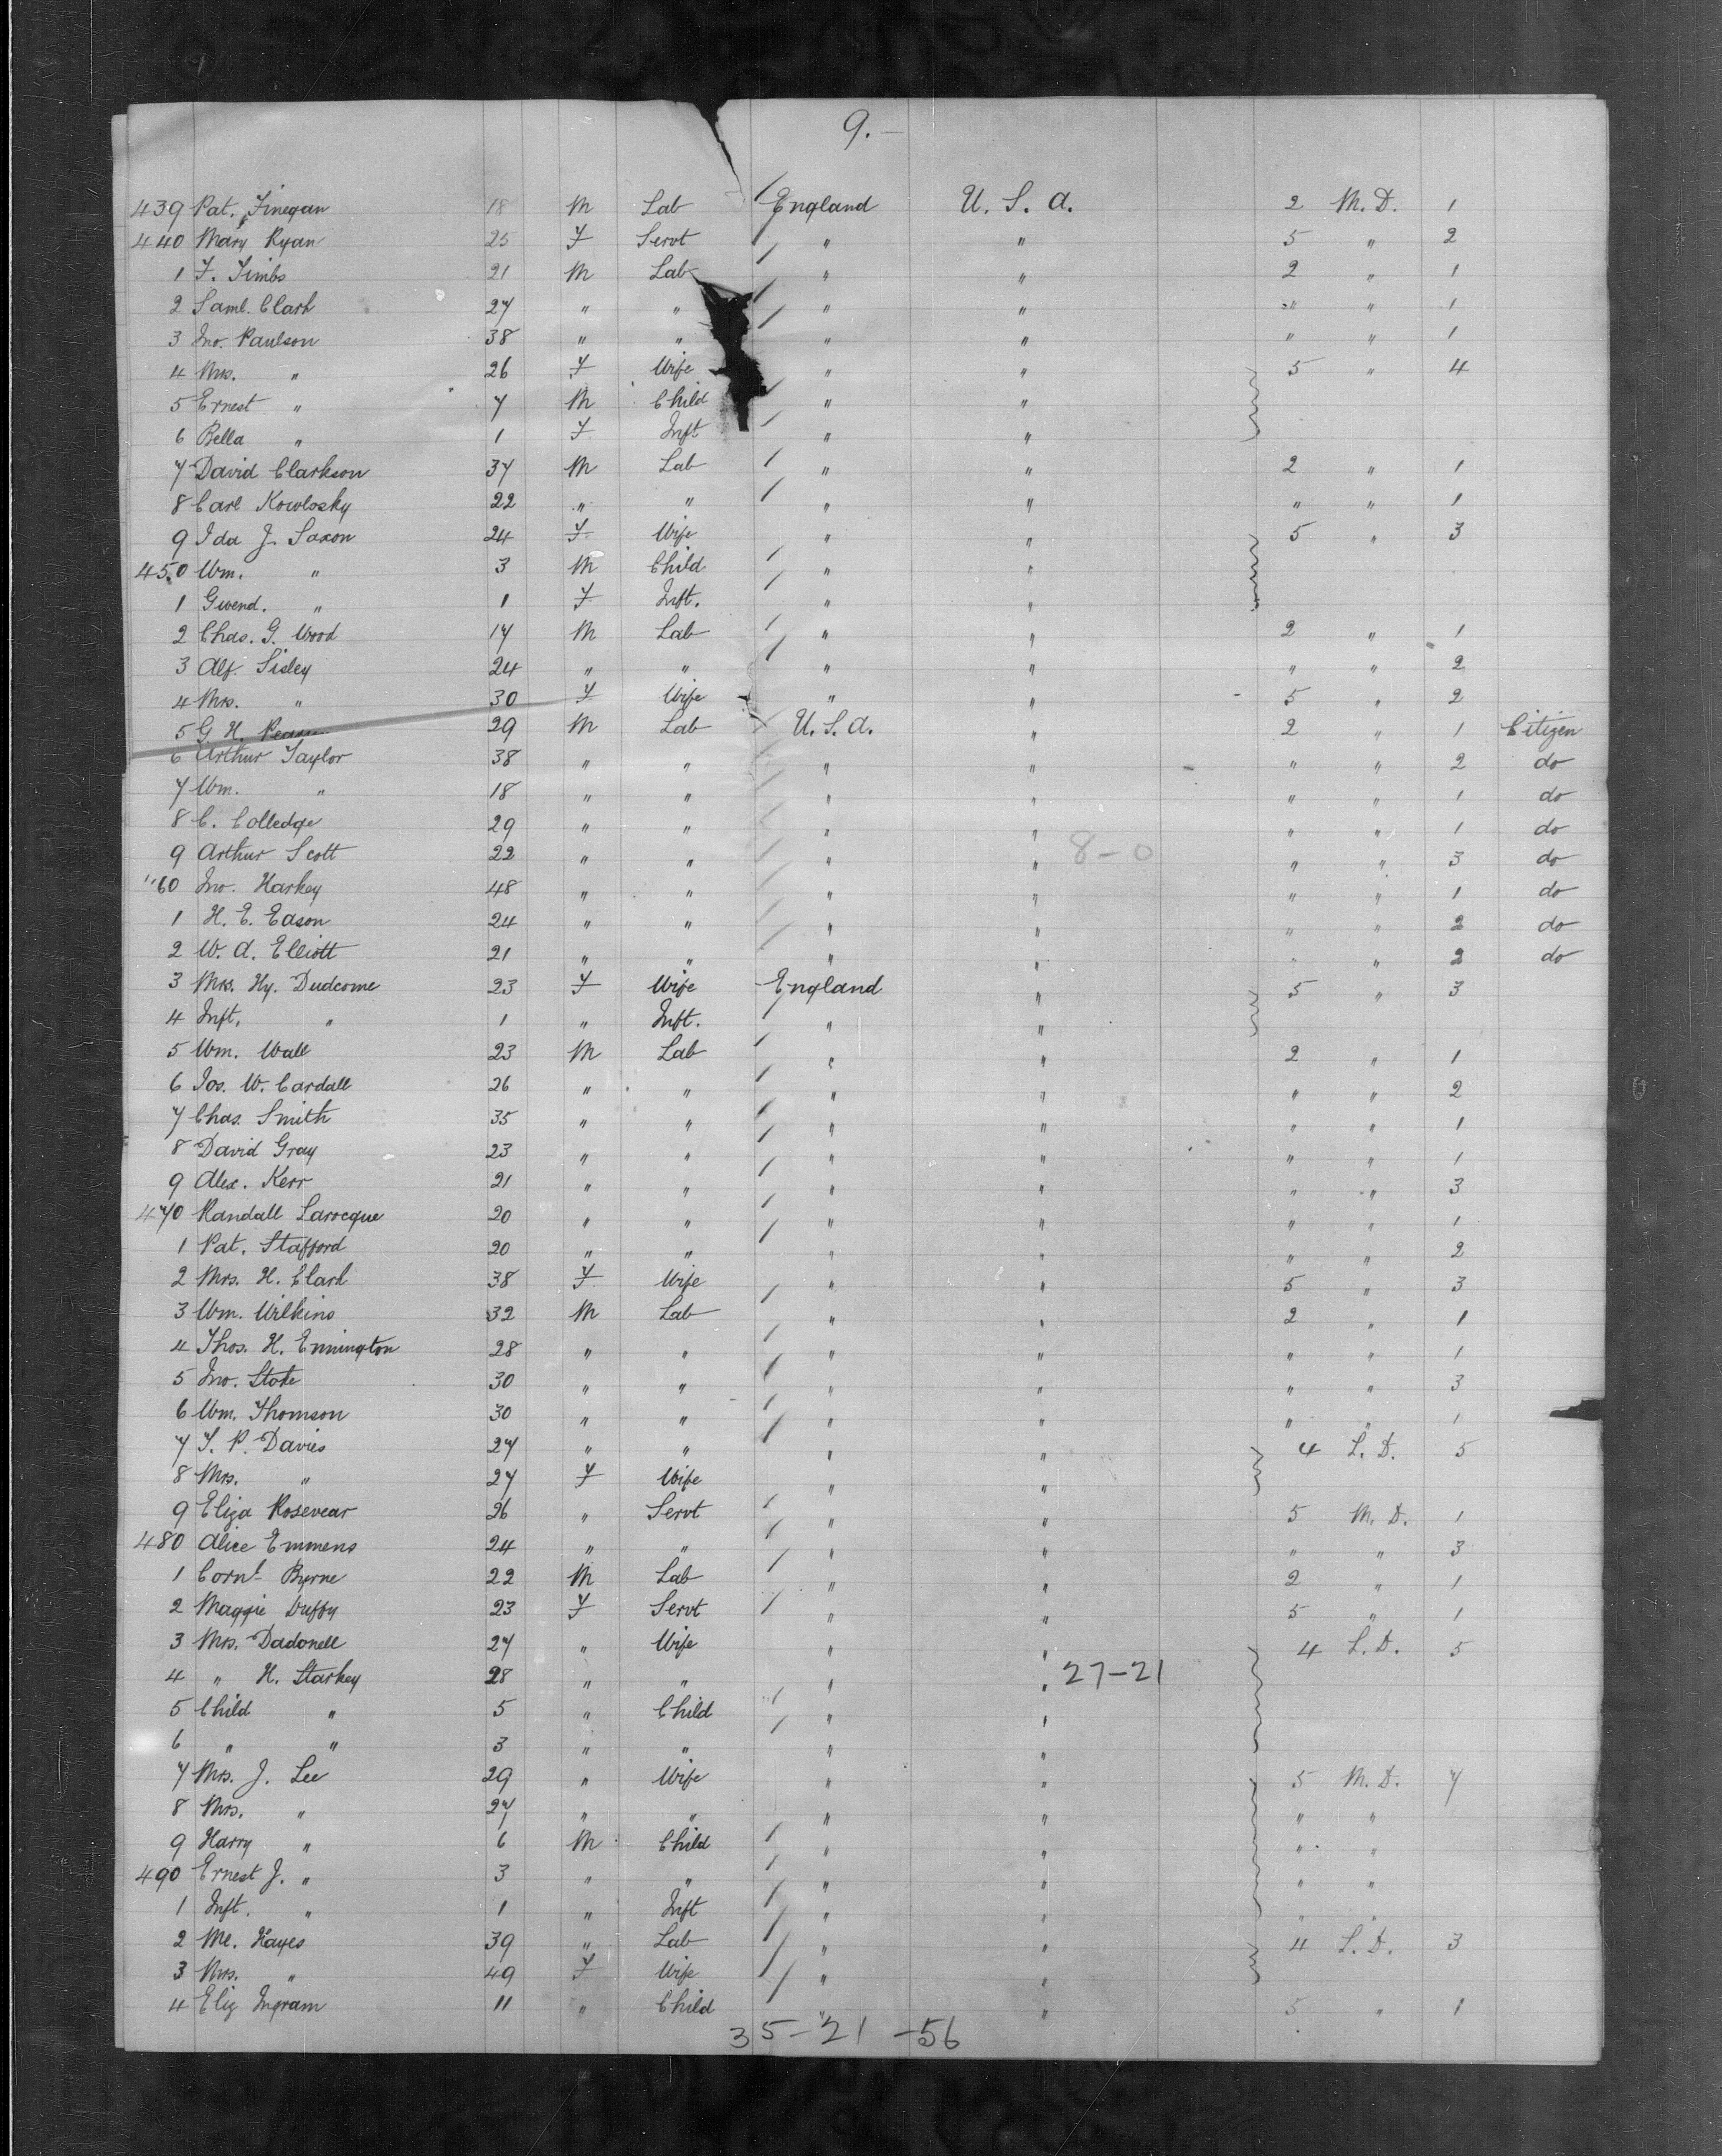 9.-
439 Pat. Finegan 18 M Lab England U. S. A. 2 M. D. 1
440 Mary Ryan 25 F Servt " " 5 " 2
1 F. Timbs 21 M Lab " " 2 " 1
2 Saml. Clark 27 " " " " " " 1
3 Jno. Paulson 38 " " " " " " 1
4 Mrs. " 26 F Wife " " 5 " 4
5 Ernest " 7 M Child " "
6 Bella " 1 F Inft " "
7 David Clarkson 37 M Lab " " 2 " 1
8 Carl Kowlosky 22 " " " " " " 1
9 Ida J. Saxon 24 F Wife " " 5 " 3
450 Wm. " 3 M Child " "
1 Gwend. " 1 F Inft. " "
2 Chas. G. Wood 17 M Lab " " 2 " 1
3 Alf. Sisley 24 " " " " " " 2
4 Mrs. " 30 F Wife " " 5 " 2
5 G H. 29 M Lab U. S. A. " 2 " 1 Citizen
6 Arthur Taylor 38 " " " " " " 2 do
7 Wm. " 18 " " " " " " 1 do
8 C. Colledge 29 " " " " " " 1 do
9 Arthur Scott 22 " " " " 8-0 " " 3 do
"60 Jno. Harkey 48 " " " " " " 1 do
1 H. E. Eason 24 " " " " " " 2 do
2 W. A. Elliott 21 " " " " " " 2 do
3 Mrs. Hy. Dudcome 23 F Wife England " 5 " 3
4 Inft. " 1 " Inft. " "
5 Wm. Wall 23 M Lab " " 2 " 1
6 Jos. W. Cardall 26 " " " " " " 2
7 Chas. Smith 35 " " " " " " 1
8 David Gray 23 " " " " " " 1
9 Alex. Kerr 21 " " " " " " 3
470 Randall Larocque 20 " " " " " " 1
1 Pat. Stafford 20 " " " " " " 2
2 Mrs. H. Clark 38 F Wife " " 5 " 3
3 Wm. Wilkins 32 M Lab " " 2 " 1
4 Thos. H. Ennington 28 " " " " " " 1
5 Jno. State 30 " " " " " " 3
6 Wm. Thomson 30 " " " " " " 1
7 T. P. Davies 27 " " " " 4 L. D. 5
8 Mrs. " 27 F Wife " "
9 Eliza Rosevear 26 " Servt " " 5 M. D. 1
480 Alice Emmens 24 " " " " " " 3
1 Cornl. Byrne 22 M Lab " " 2 " 1
2 Maggie Duffy 23 F Servt " " 5 " 1
3 Mrs. Dadonell 27 " Wife " " 4 L. D. 5
4 " H. Starkey 28 " " " " 27-21
5 Child " 5 " Child " "
6 " " 3 " " " "
7 Mrs. J. Lee 29 " Wife " " 5 M. D. 7
8 Mrs. " 27 " " " " " "
9 Harry " 6 M Child " " " "
490 Ernest J. " 3 " " " " " "
1 Inft. " 1 " Inft " " " "
2 Me. Hayes 39 " Lab " " 4 L. D. 3
3 Mrs. " 49 F Wife " "
4 Eliz Ingram 11 " Child " " 5 " 1
35-21-56